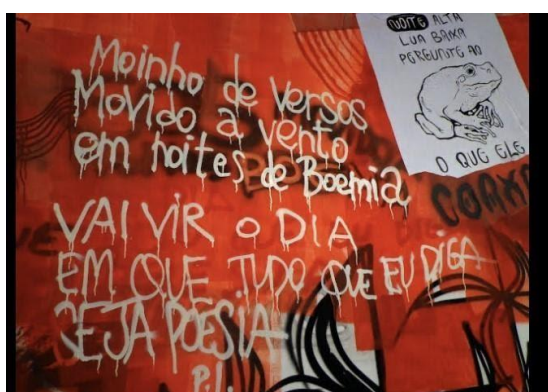 Moinho de Versos
Movido a vento
em noites de Boemia
VAI VIR O DIA
EM QUE TUDO QUE EU DIGA
SEJA POESIA
P.L.
NOITE ALTA
LUA BAIXA
PERGUNTE AO
O QUE ELE
COAXA